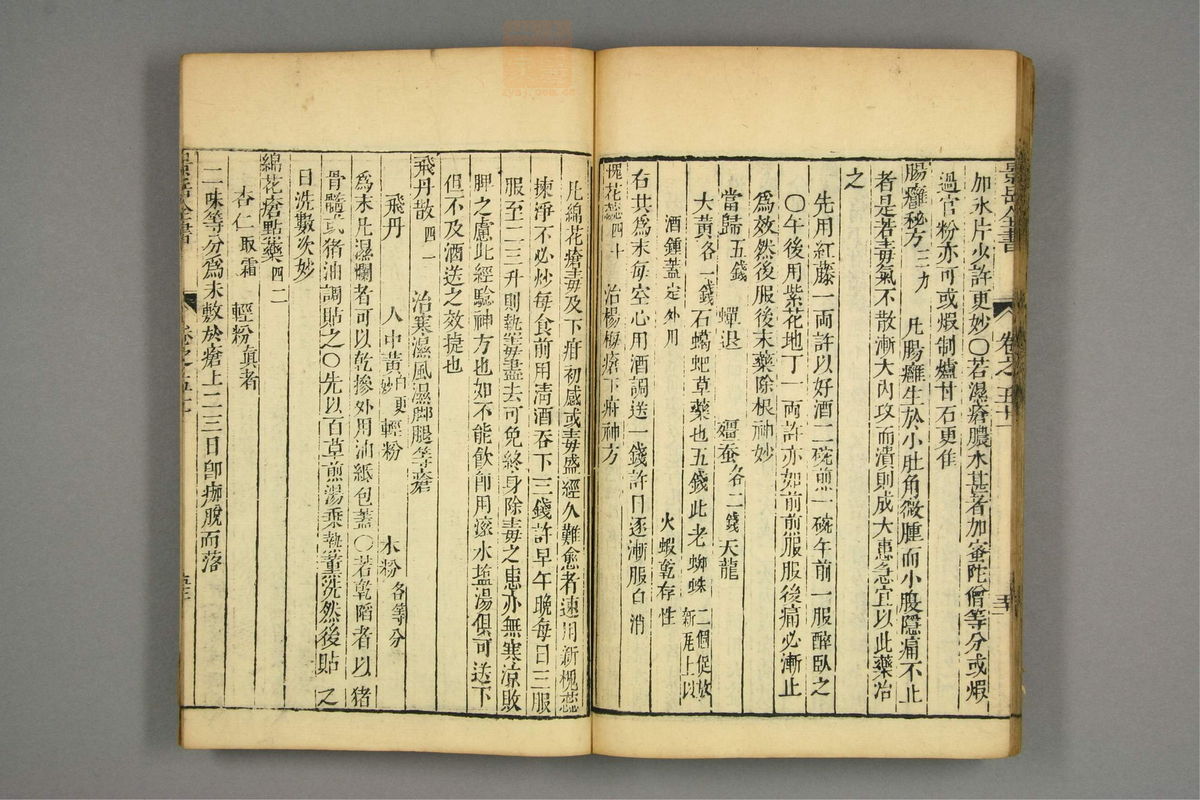 景岳全書 卷之五十一
加氷片少許更妙〇若濕瘡膿水甚者加蜜陀僧等分或煆
過官粉亦可或煆制爐甘石更佳
腸癰秘方 三九 凡腸癰生於小肚角微腫而小腹隱痛不止
者是若毒氣不散漸大內攻而潰則成大患急宜以此藥治
之
先用紅藤一兩許以好酒二碗煎一碗午前一服醉臥之
〇午後用紫花地丁一兩許亦如前煎服服後痛必漸止
爲效然後服後末藥除根神妙
當歸五錢 蟬退 殭蚕各二錢 天龍
大黃各一錢 石蠍蚆草藥也五錢 此老蜘蛛二個促放新瓦上以
酒鍾蓋定外用火煆乾存性
右共爲末每空心用酒調送一錢許日逐漸服自消
槐花蕊 四十 治楊梅瘡下疳神方
凡綿花瘡毒及下疳初感或毒盛經久難愈者速用新槐蕊
揀淨不必炒每食前用清酒吞下三錢許早午晚每日三服
服至二三升則熱毒盡去可免終身除毒之患亦無寒凉敗
脾之慮此經驗神方也如不能飲卽用滚水塩湯俱可送下
但不及酒送之效捷也
飛丹散 四一 治寒濕風濕脚腿等瘡
飛丹 人中黃白更妙 輕粉 水粉各等分
爲末凡濕爛者可以乾摻外用油紙包蓋〇若乾陷者以猪
骨髓或猪油調貼之〇先以百草煎湯乘熱薰洗然後貼之
日洗數次妙
綿花瘡點藥 四二
杏仁取霜 輕粉眞者
二味等分爲末敷於瘡上二三日卽痂脫而落
景岳全書